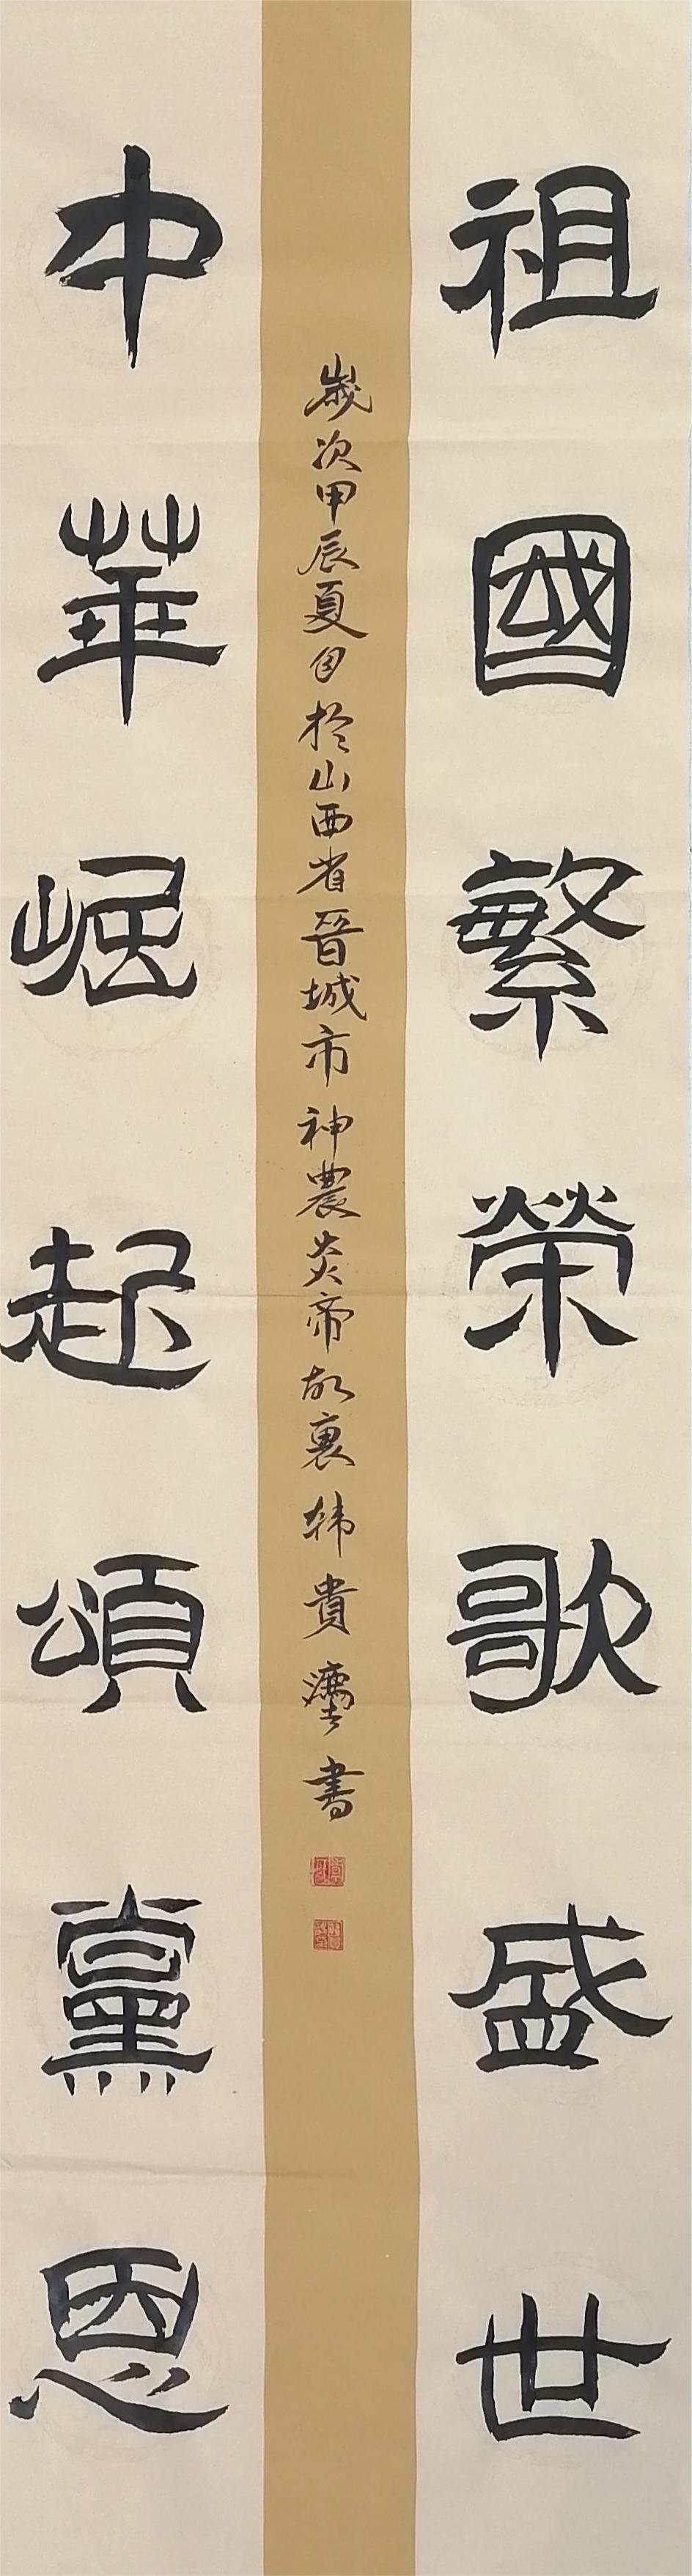 祖國繁榮歌盛世
歲次甲辰夏月於山西省晉城市神農炎帝故裏韩貴書
中華崛起頌黨恩